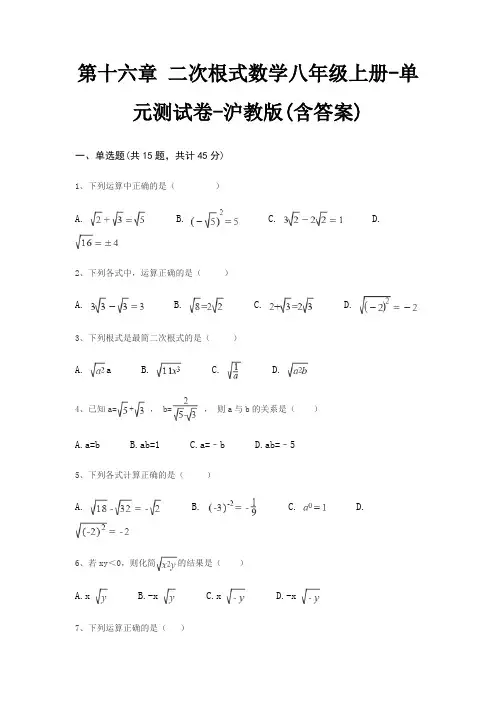 第十六章 二次根式数学八年级上册-单
元测试卷-沪教版(含答案)
一、单选题(共15题，共计45分)
1、下列运算中正确的是（ ）
A. √2+√3=√5 B. (-√5)²=5 C. 3√2-2√2=1 D.
√16=±4
2、下列各式中，运算正确的是（ ）
A. 3√3-√3=3 B. √8=2√2 C. 2+√3=2√3 D. √(-2)²=-2
3、下列根式是最简二次根式的是（ ）
A. √a² a B. √11x³ C. √(1/a) D. √a²b
4、已知a=√5+√3 ， b=2/(√5-√3) ， 则a与b的关系是（ ）
A.a=b B.ab=1 C.a=﹣b D.ab=﹣5
5、下列各式计算正确的是（ ）
A. √18-√32=-√2 B. (-3)⁻²=-1/9 C. a⁰=1 D.
√(-2)²=-2
6、若xy＜0，则化简√x²y的结果是（ ）
A.x √y B.-x √y C.x √-y D.-x √-y
7、下列运算正确的是（ ）